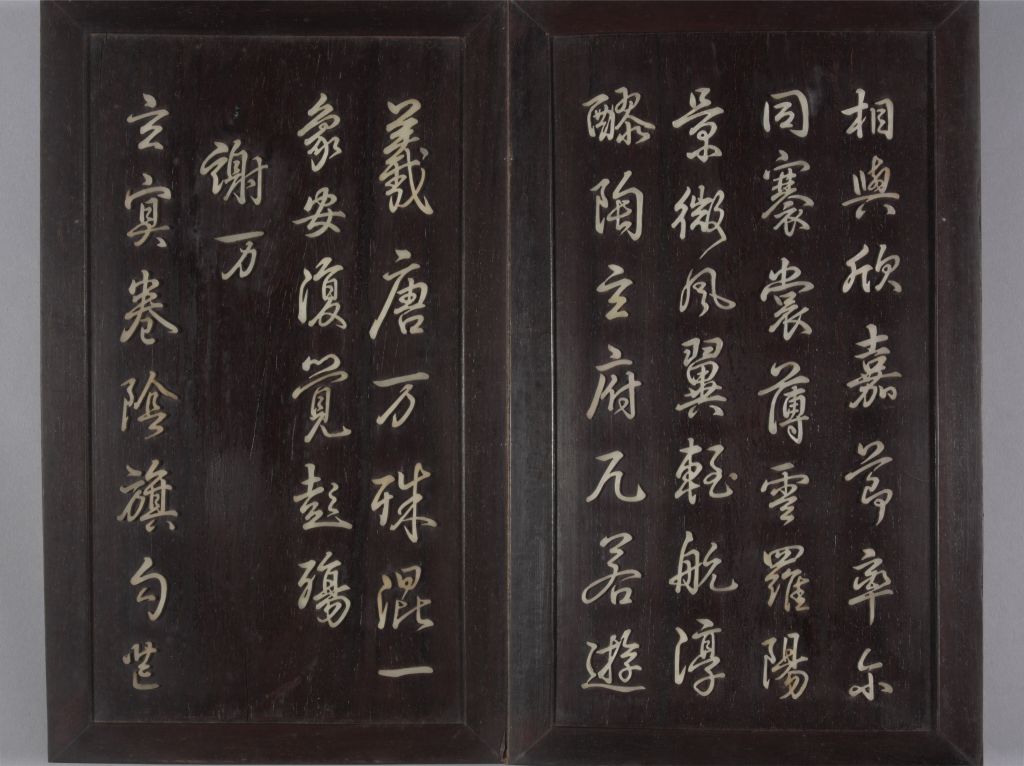 相與欣嘉節率尒
同褰裳薄雲羅陽
景微風翼輕航淳
醪陶玄府兀若遊
羲唐万殊混一
象安復覺彭殤
謝万
玄冥卷陰旗勾芒